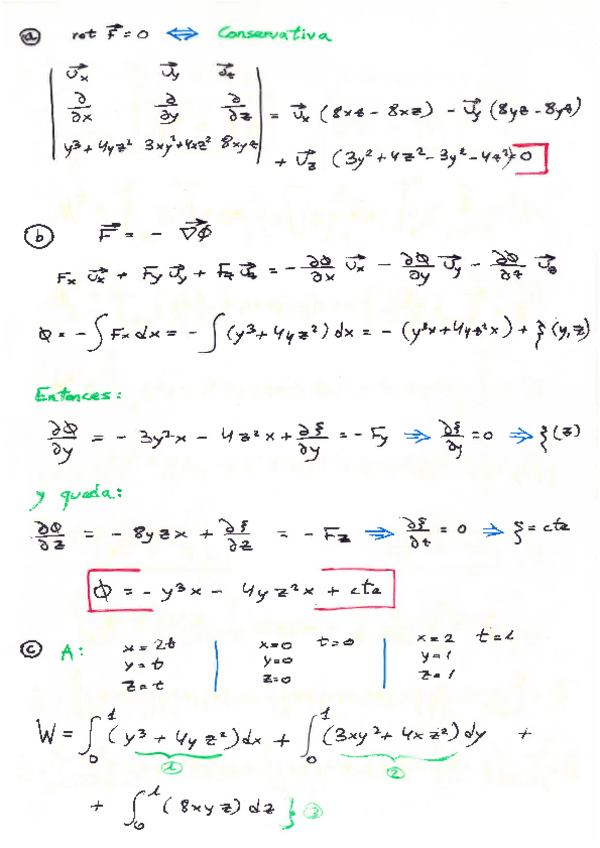 ⓐ rot F⃗ = 0 ⇔ Conservativa
| u⃗x u⃗y u⃗z |
| ∂/∂x ∂/∂y ∂/∂z | = u⃗x (8xz - 8xz) - u⃗y (8yz - 8yz)
| y³ + 4yz² 3xy² + 4xz² 8xyz | + u⃗z (3y² + 4z² - 3y² - 4z²) = 0
ⓑ F⃗ = - ∇⃗Φ
Fx u⃗x + Fy u⃗y + Fz u⃗z = - ∂Φ/∂x u⃗x - ∂Φ/∂y u⃗y - ∂Φ/∂z u⃗z
Φ = - ∫ Fx dx = - ∫ (y³ + 4yz²) dx = - (y³x + 4yz²x) + ξ(y,z)
Entonces:
∂Φ/∂y = - 3y²x - 4z²x + ∂ξ/∂y = - Fy ⇒ ∂ξ/∂y = 0 ⇒ ξ(z)
y queda:
∂Φ/∂z = - 8yzx + ∂ξ/∂z = - Fz ⇒ ∂ξ/∂z = 0 ⇒ ξ = cte
Φ = - y³x - 4yz²x + cte
ⓒ A: x = 2t | x = 0 t = 0 | x = 2 t = 1
y = t | y = 0 | y = 1
z = t | z = 0 | z = 1
W = ∫₀¹ (y³ + 4yz²) dx + ∫₀¹ (3xy² + 4xz²) dy +
① ②
+ ∫₀¹ (8xyz) dz } ③